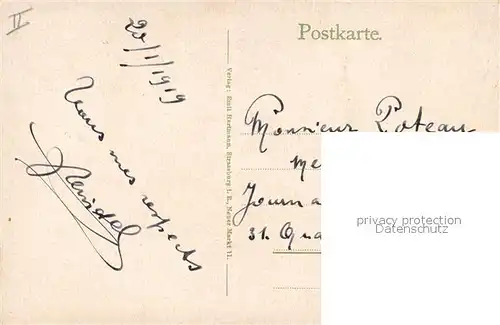 II
Postkarte.
20/1/1919
Tous mes respects
Verlag: Emil Hartmann, Strassburg i. E., Neuer Markt 11.
Monsieur Poteau-
Me
Journa
31. Qua
privacy protection
Datenschutz